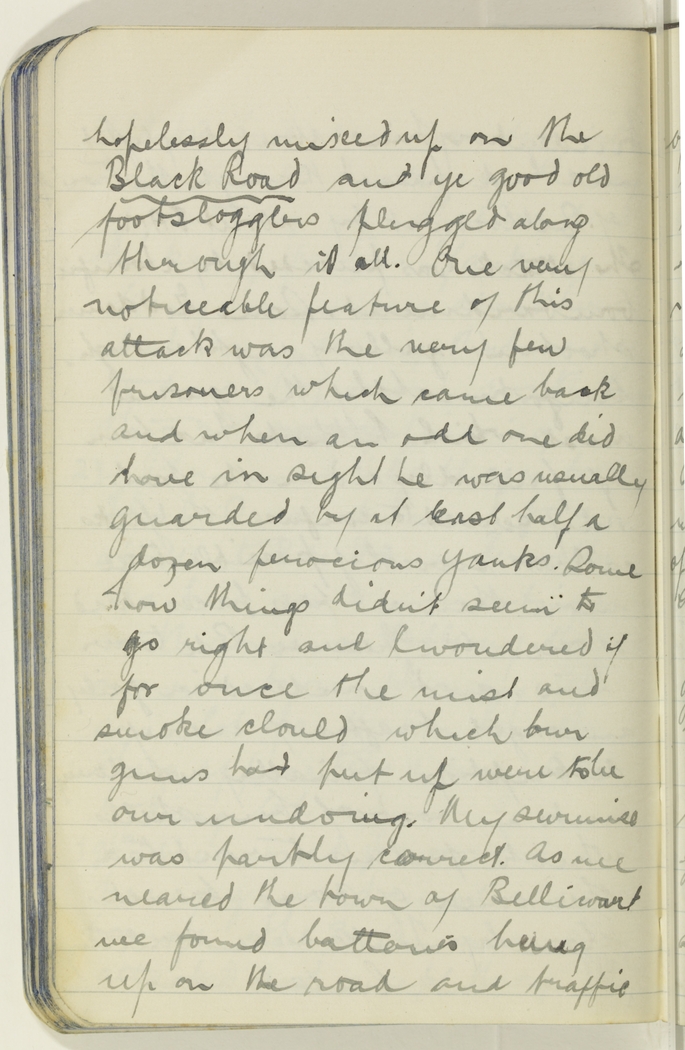 hopelessly mixed up on the
Black Road and ye good old
footsloggers plugged along
through it all. One very
noticeable feature of this
attack was the very few
prisoners which came back
and when an odd one did
hove in sight he was usually
guarded by at least half a
dozen ferocious Yanks. Some
how things didn't seem to
go right and I wondered if
for once the mist and
smoke clould which our
guns had put up were to be
our undoing. My surmise
was partly correct. As we
neared the town of Bellicourt
we found batteries hung
up on the road and traffic